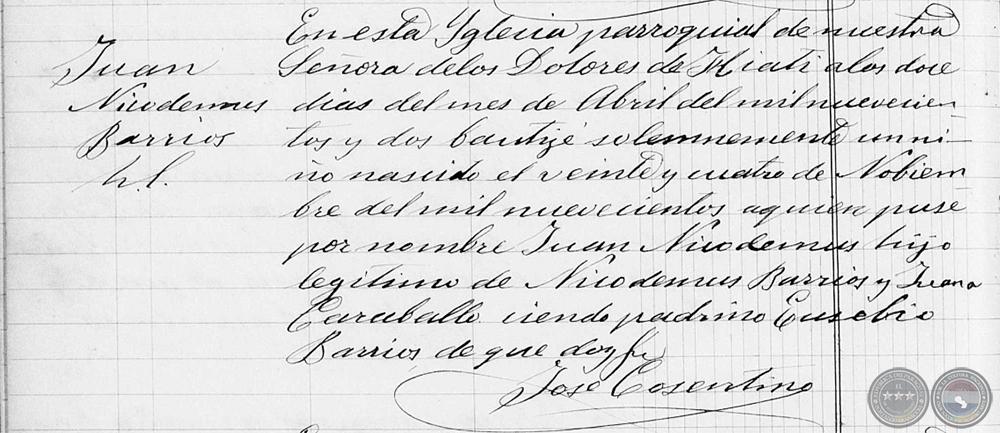 Juan
Nicodemus
Barrios
h. l.
En esta Yglecia parroquial de nuestra
Señora delos Dolores de Kiati alos doce
dias del mes de Abril del mil nuevecien
tos y dos bautizé solemnemente un ni-
ño nascido el veinte y cuatro de Nobiem
bre del mil nuevecientos aquien puse
por nombre Juan Nicodemus hijo
legitimo de Nicodemus Barrios y Juana
Caraballo ciendo padrino Eusebio
Barrios de que doy fe
José Cosentino